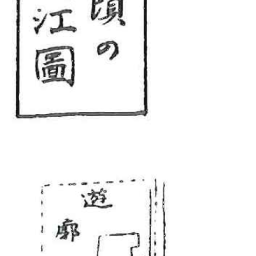 頃の
江圖
遊
廓